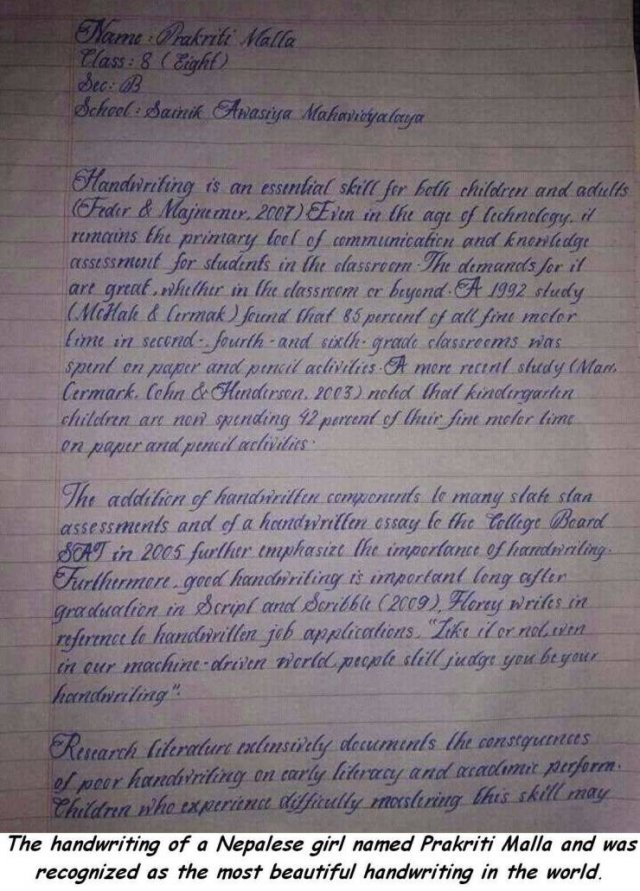 Name : Prakriti Malla
Class : 8 ( Eight )
Sec : B
School : Sainik Awasiya Mahavidyalaya
Handwriting is an essential skill for both children and adults
(Feder & Majnemer, 2007) Even in the age of technology, it
remains the primary tool of communication and knowledge
assessment for students in the classroom. The demands for it
are great, whether in the classroom or beyond. A 1992 study
(McHale & Cermak) found that 85 percent of all fine motor
time in second-, fourth-and sixth-grade classrooms was
spent on paper and pencil activities. A more recent study (Marr,
Cermark, Cohn & Henderson, 2003) noted that kindergarten
children are now spending 42 percent of their fine motor time
on paper and pencil activities.
The addition of handwritten components to many state stan
assessments and of a handwritten essay to the College Board
SAT in 2005 further emphasize the importance of handwriting.
Furthermore, good handwriting is important long after
graduation in Script and Scribble (2009), Florey writes in
reference to handwritten job applications, "Like it or not, even
in our machine-driven world, people still judge you be your
handwriting".
Research literature extensively documents the consequences
of poor handwriting on early literacy and academic perform.
Children who experience difficulty mastering this skill may
The handwriting of a Nepalese girl named Prakriti Malla and was
recognized as the most beautiful handwriting in the world.